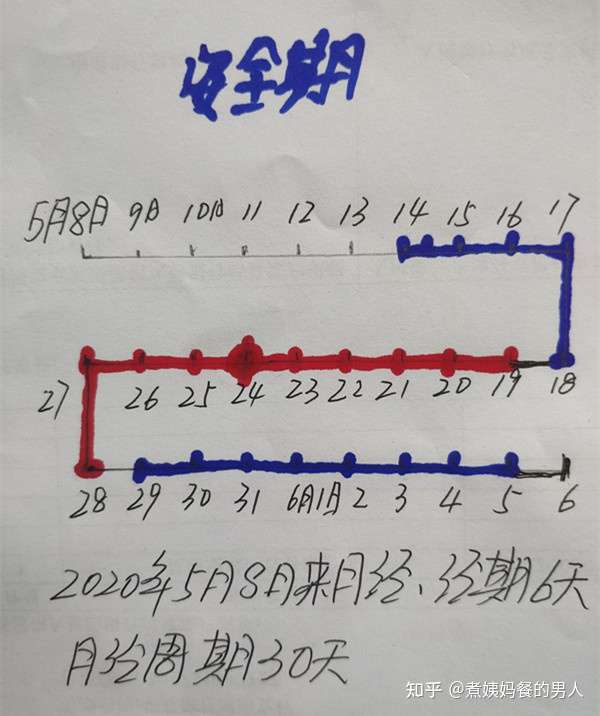 安全期
5月8日 9日 10日 11 12 13 14 15 16 17
27 26 25 24 23 22 21 20 19 18
28 29 30 31 6月1日 2 3 4 5 6
2020年5月8日来月经、经期6天
月经周期30天
知乎 @煮姨妈餐的男人